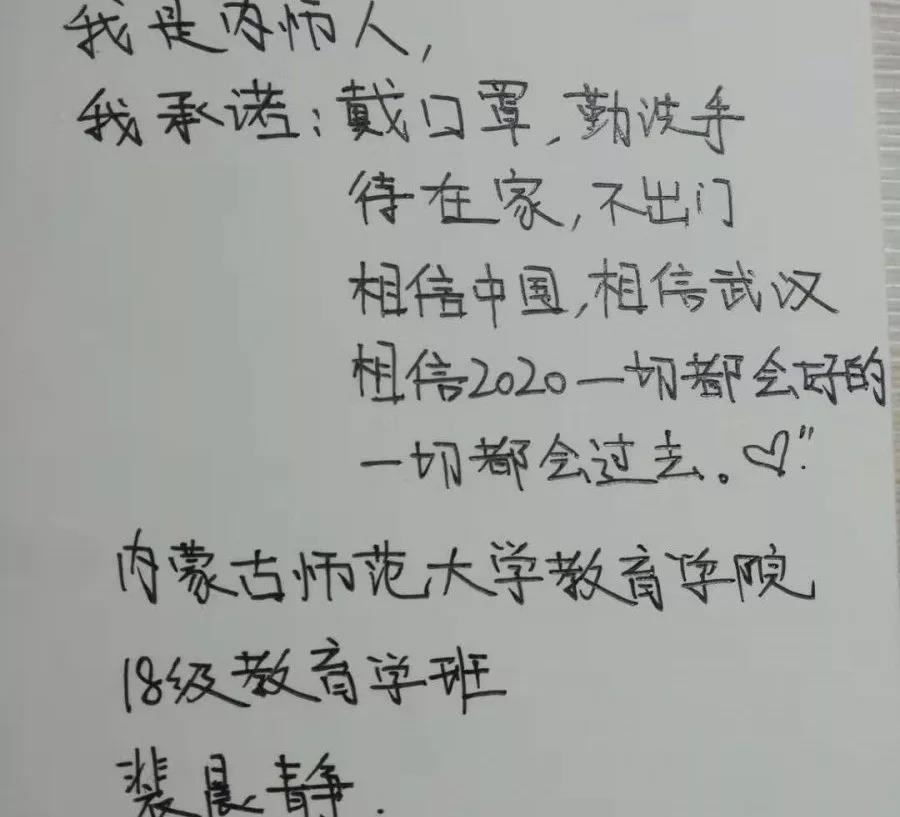 我是内师人,
我承诺:戴口罩,勤洗手
待在家,不出门
相信中国,相信武汉
相信2020一切都会好的
一切都会过去。♡"
内蒙古师范大学教育学院
18级教育学班
裴晨静.